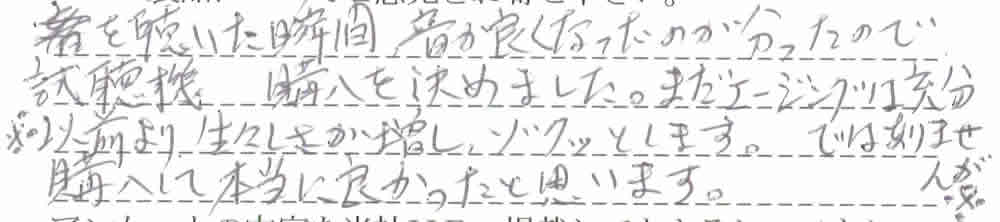 音を聴いた瞬間 音が良くなったのが分ったので
試聴機 購入を決めました。まだエージングは充分
※以前より生々しさが増し、ゾクッとします。 ではありませ
購入して本当に良かったと思います。 んが※